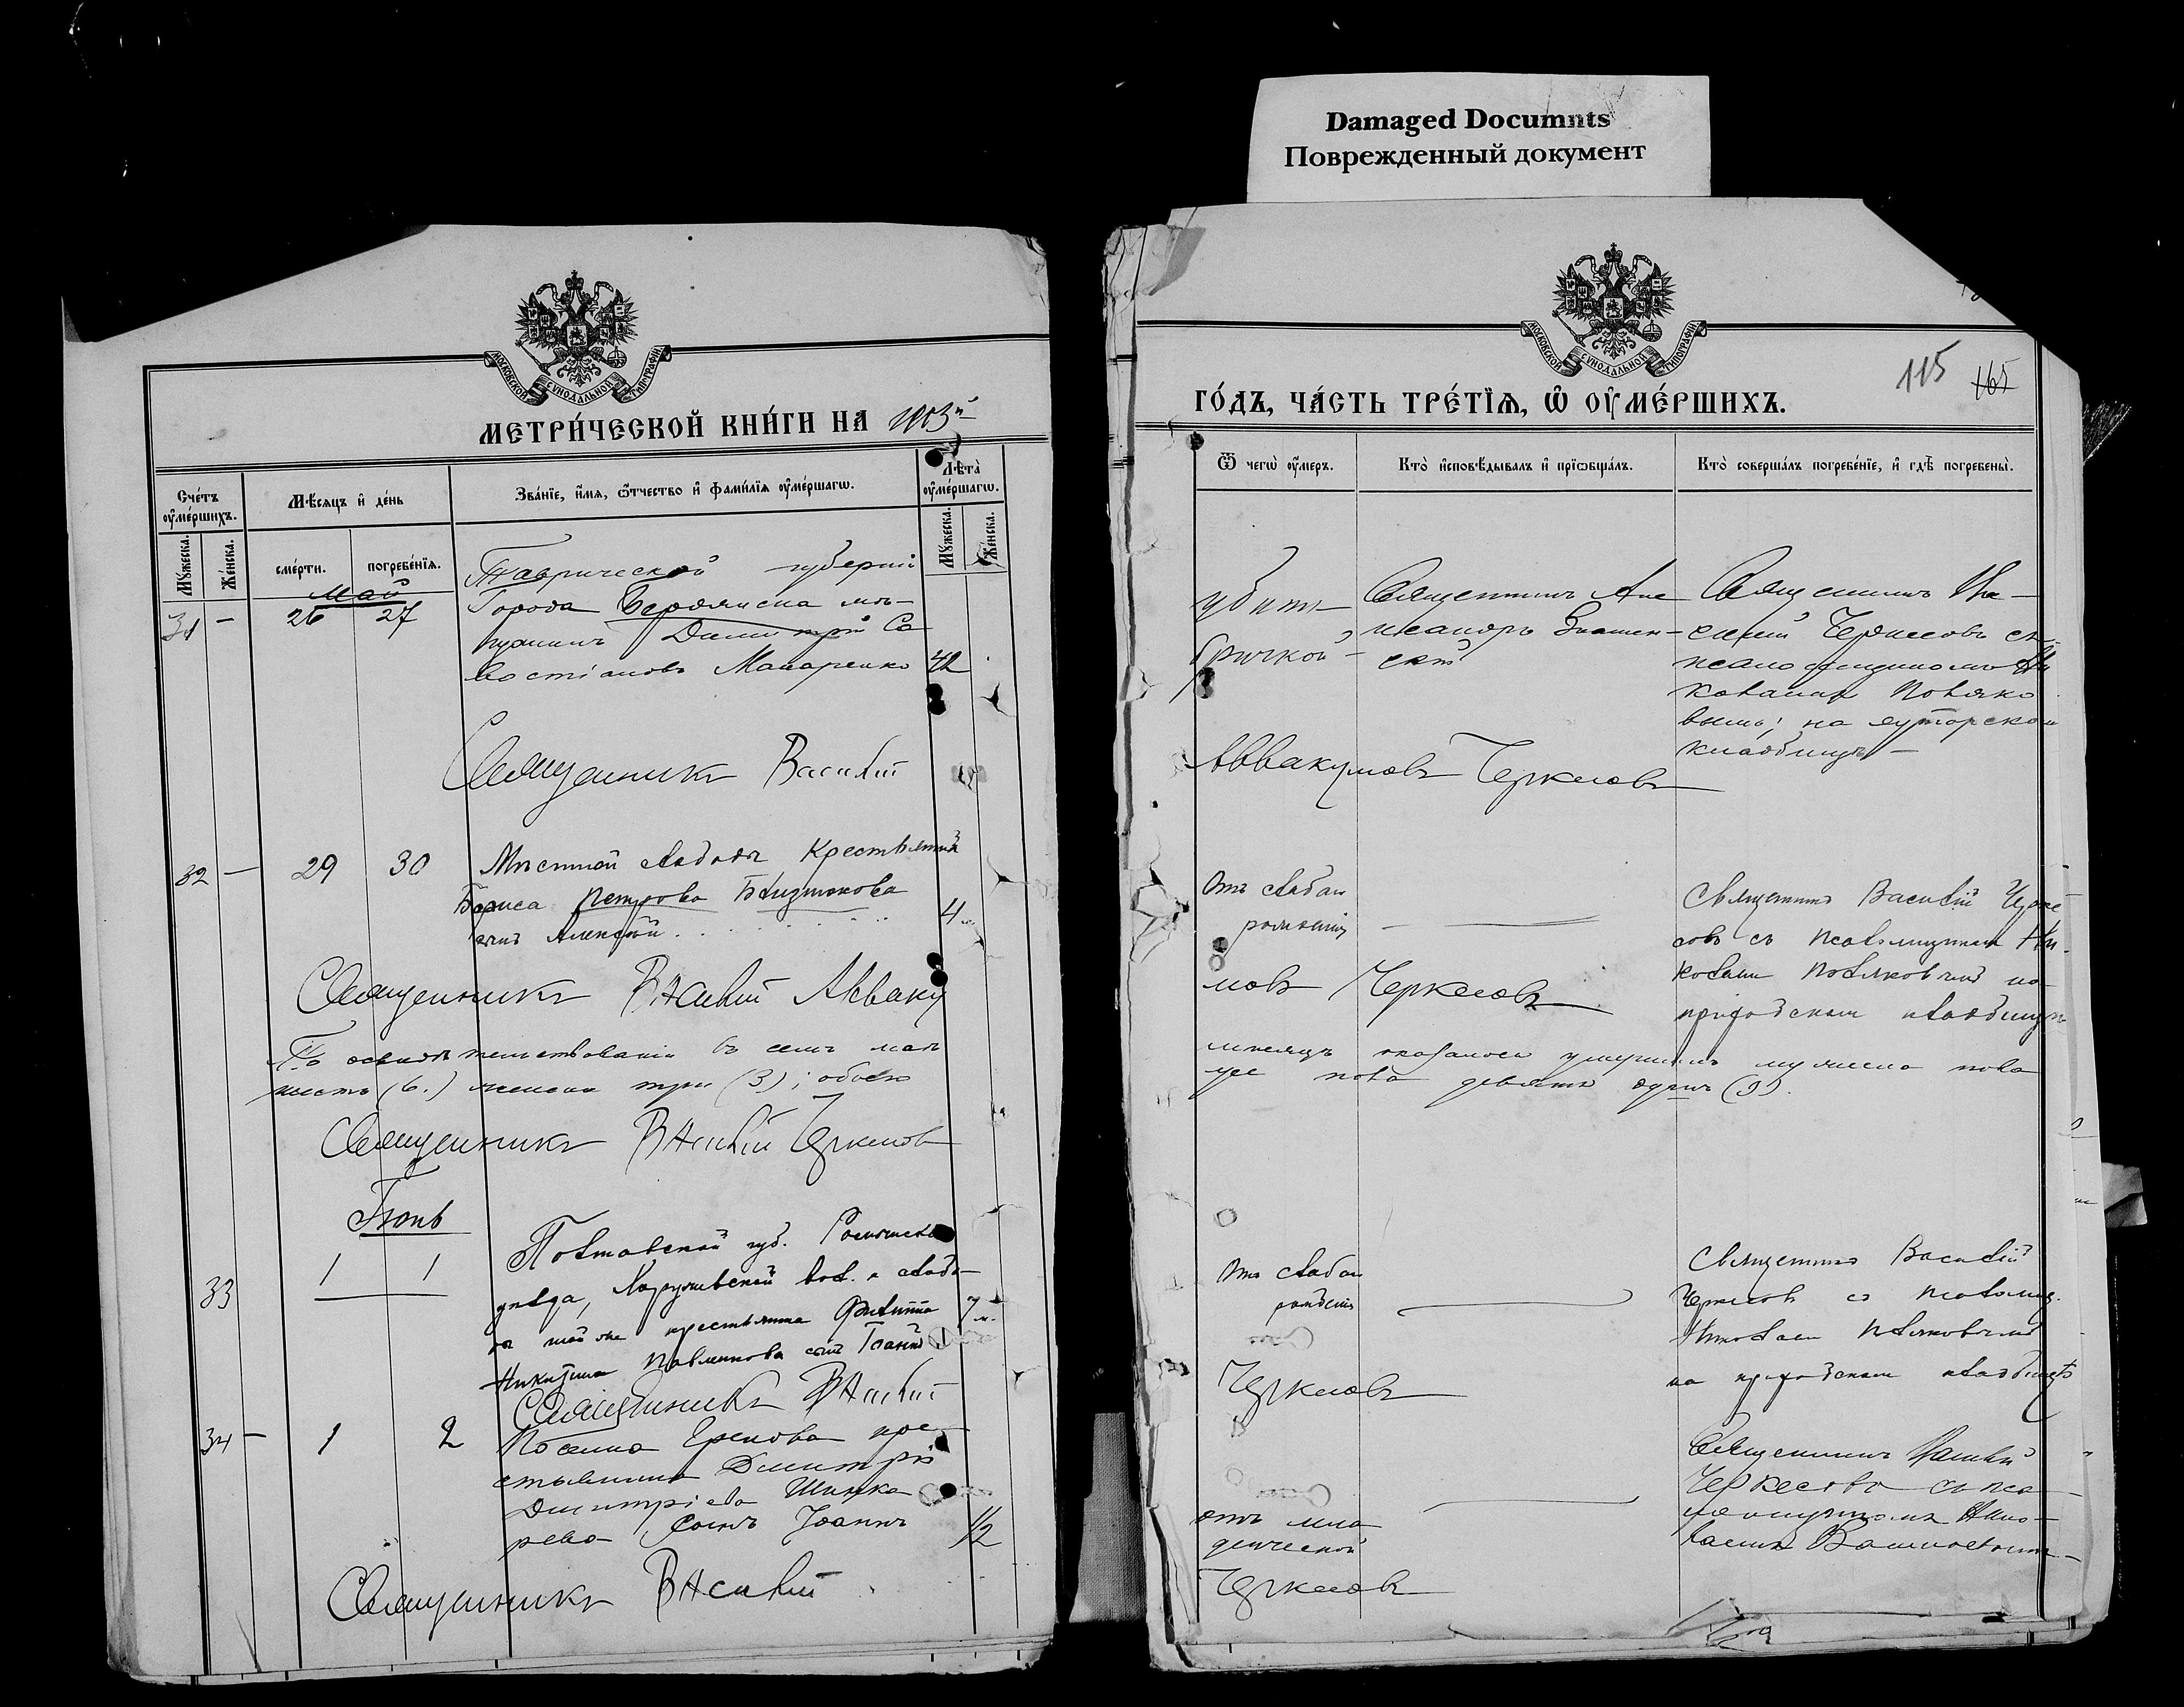 Damaged Documnts
Поврежденный документ
МОСКОВСКОЙ СУНОДАЛЬНОЙ ТИПОГРАФІИ
МЕТРИ́ЧЕСКОЙ КНИ́ГИ НА 1903й
Сче́тъ ᲂу҆ме́ршихъ.
Мѣ́сяцъ и҆ де́нь
Зва́нїе, и҆́мѧ, ѻ҆́тчество и҆ фами́лїѧ ᲂу҆ме́ршагѡ.
Лѣ́та ᲂу҆ме́ршагѡ.
Мꙋ́жеска.
Же́нска.
сме́рти.
погребе́нїѧ.
Мꙋ́жеска.
Же́нска.
Май
31 — 26 27
Таврической губерніи
Города Бердянска мѣ-
щанинъ Димитрій Са
востіановъ Макаренко 42
Священникъ Василій
32 — 29 30 Мѣстной слободы крестьянина
Бориса Петрова Близнюкова
сынъ Алексѣй 4
Священникъ Василій Авваку
По освидѣтельствованіи въ семъ мая
шесть (6.) женска три (3); обоего
Священникъ Василій Черкесовъ
Іюнь
33 1 1
Полтавской губ.
уѣзда, вол. и слобо-
крестьянина Филиппа
Никитина Павленкова сынъ Іоаннъ 7 м.
Священникъ Василій
34 — 1 2
Поселка кре-
стьянина Димитрія
Димитріева Шинка
рева сынъ Іоаннъ 1/2
Священникъ Василій
МОСКОВСКОЙ СУНОДАЛЬНОЙ ТИПОГРАФІИ
115 165
ГО́ДЪ, ЧА́СТЬ ТРЕ́ТЇѦ, Ѡ҆ ОУ҆МЕ́РШИХЪ.
Ѿ чегѡ̀ ᲂу҆́меръ.
Кто̀ и҆сповѣ́дывалъ и҆ прїѡбща́лъ.
Кто̀ соверша́лъ погребе́нїе, и҆ гдѣ̀ погребены̀.
убитъ
бричкой
Священникъ Але
ксандръ Знамен-
скій
Священникъ Ва-
силій Черкесовъ съ
псаломщикомъ Ни
колаемъ Поляко
вымъ; на хуторскомъ
кладбищѣ —
Аввакумовъ Черкесовъ
Отъ слабаго
рожденія
Священникъ Василій Черке
совъ съ псаломщикомъ Ни-
колаемъ Поляковымъ на
приходскомъ кладбищѣ
мовъ Черкесовъ
мѣсяцъ оказалось умершихъ мужеска пола
же пола девять душъ (9).
Отъ слабаго
рожденія
Священникъ Василій
Черкесовъ съ псаломщ.
Николаемъ Поляковымъ
на приходскомъ кладбищѣ
Черкесовъ
отъ мла
денческой
Священникъ Василій
Черкесовъ съ пса
ломщикомъ Нико-
лаемъ
Черкесовъ